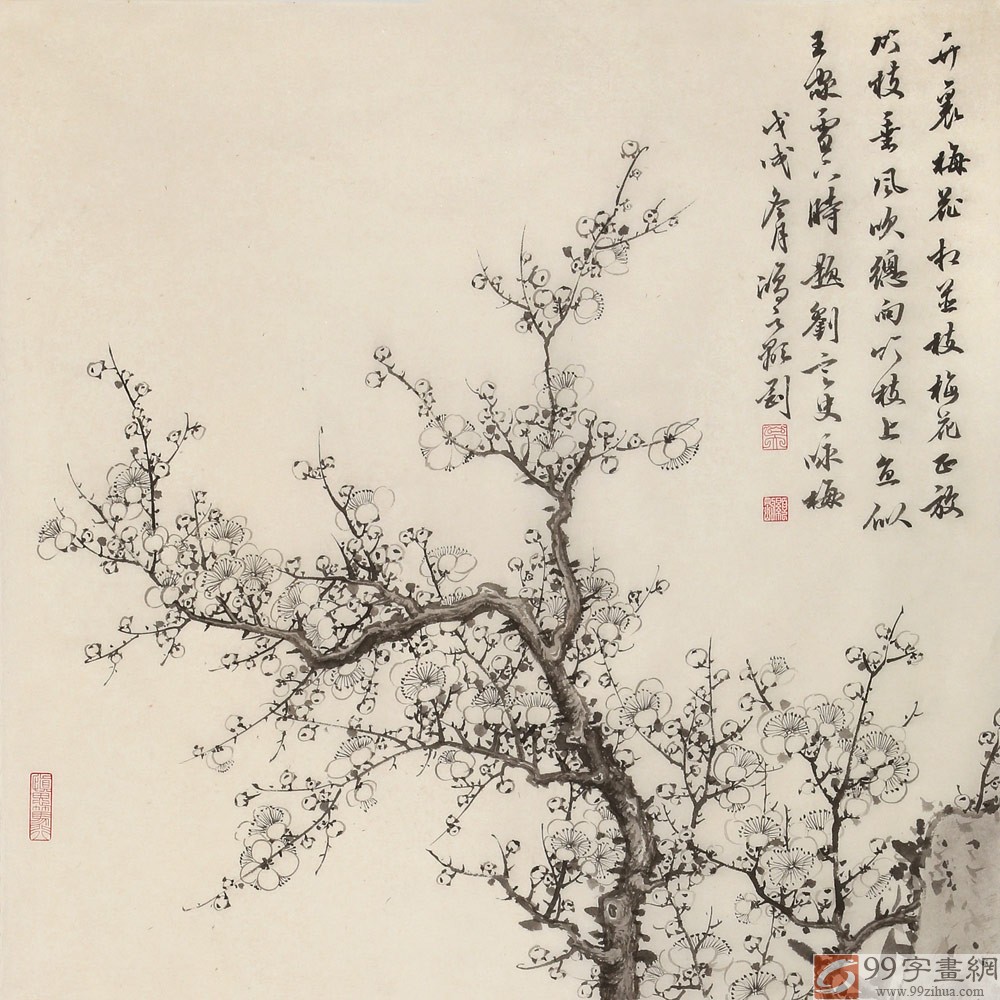 竹裏梅花相並枝梅花正放
竹枝垂風吹總向竹枝上直似
王家雪下時題劉言史詠梅
戊戌冬月
99字畫網
www.99zihua.com